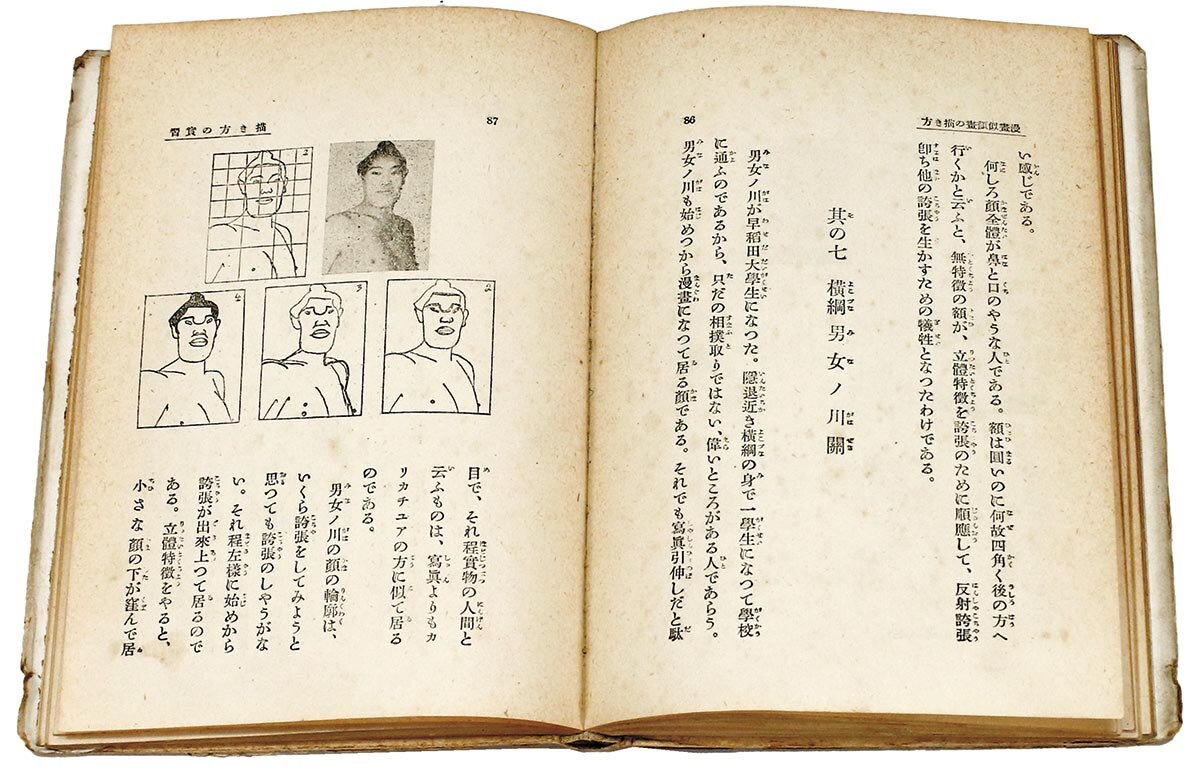 漫畫似顔畫の描き方
い感じである。
何しろ顔全體が鼻と口のやうな人である。額は圓いのに何故四角く後の方へ
行くかと云ふと、無特徴の額が、立體特徴を誇張のために順應して、反射誇張
卽ち他の誇張を生かすための犠牲となつたわけである。
其の七 橫綱 男女ノ川關
男女ノ川が早稻田大學生になつた。隱退近き橫綱の身で一學生になつて學校
に通ふのであるから、只だの相撲取りではない、偉いところがある人であらう。
男女ノ川も始めつから漫畫になつて居る顔である。それでも寫眞引伸しだと駄
86
87
描き方の實習
目で、それ程實物の人間と
云ふものは、寫眞よりもカ
リカチユアの方に似て居る
のである。
男女ノ川の顔の輪廓は、
いくら誇張をしてみようと
思つても誇張のしやうがな
い。それ程左樣に始めから
誇張が出來上つて居るので
ある。立體特徴をやると、
小さな顔の下が窪んで居